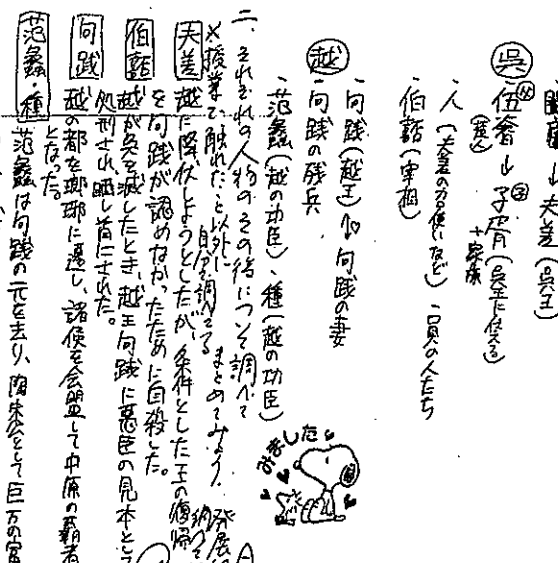 闔廬→夫差（呉王）
呉
父 伍奢→子 子胥（呉王に仕える）
＋家族
人（夫差の召使いなど）
呉の人たち
伯嚭（宰相）
越
句践（越王）
句践の妻
句践の残兵
范蠡（越の功臣）・種（越の功臣）
みました
二、それぞれの人物のその後について調べて
まとめてみよう。
※授業で触れたこと以外に
自分で調べて
夫差 越に降伏しようとしたが、条件とした王の復帰
を句践が認めなかったために自殺した。
伯嚭 越が呉を滅したとき、越王句践に悪臣の見本として
処刑され、晒し首にされた。
句践 越の都を瑯琊に遷し、諸侯を会盟して中原の覇者
となった。
范蠡・種 范蠡は句践の元を去り、陶朱公として巨万の富